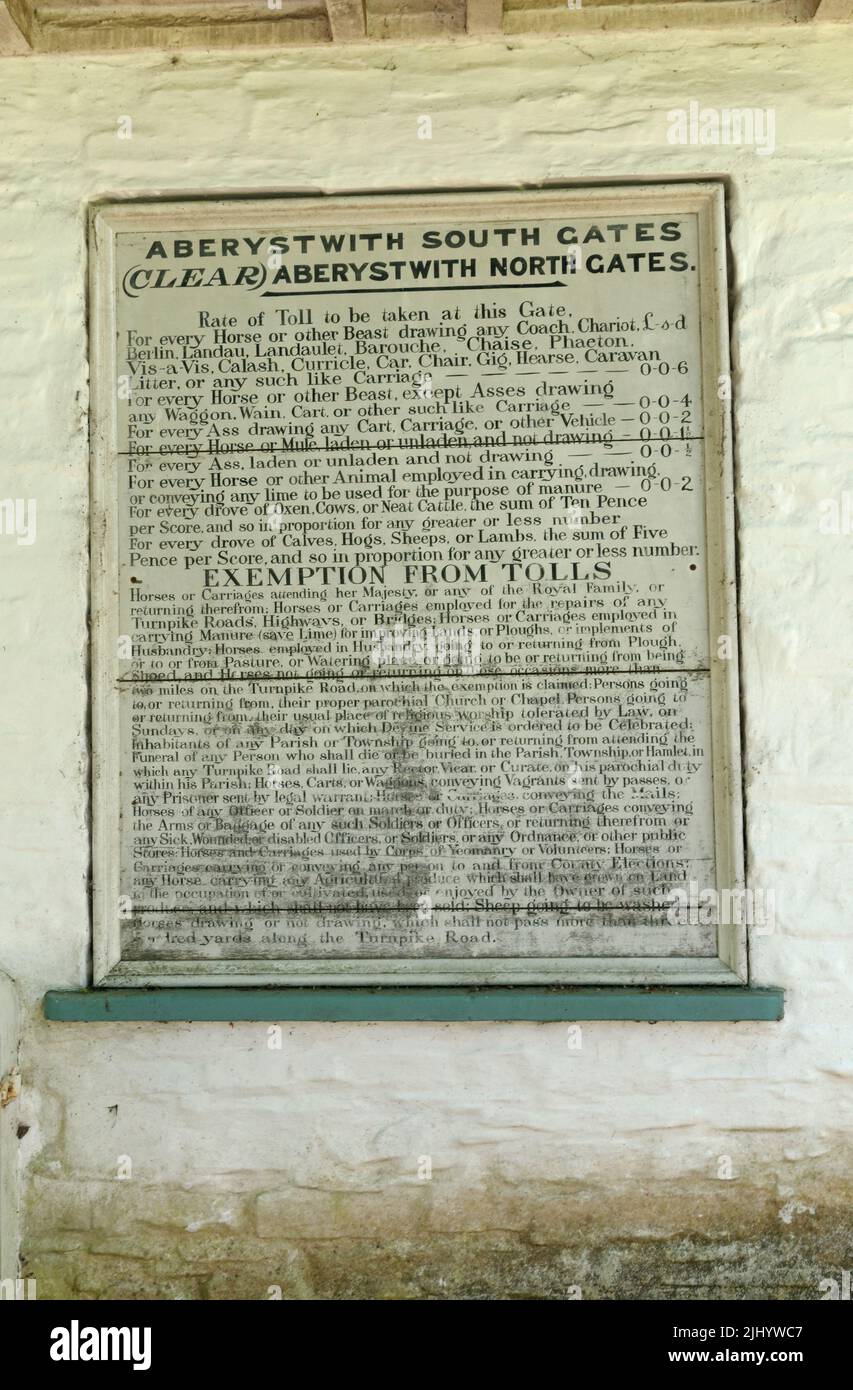 ABERYSTWITH SOUTH GATES
(CLEAR) ABERYSTWITH NORTH GATES.
Rate of Toll to be taken at this Gate,
For every Horse or other Beast drawing any Coach, Chariot, £-s-d
Berlin, Landau, Landaulet, Barouche, Chaise, Phaeton,
Vis-a-Vis, Calash, Curricle, Car, Chair, Gig, Hearse, Caravan
Litter, or any such like Carriage — — — — — 0-0-6
For every Horse or other Beast, except Asses drawing
any Waggon, Wain, Cart, or other such like Carriage — — 0-0-4
For every Ass drawing any Cart, Carriage, or other Vehicle — 0-0-2
For every Horse or Mule, laden or unladen, and not drawing — 0-0-1½
For every Ass, laden or unladen and not drawing — — — 0-0-½
For every Horse or other Animal employed in carrying, drawing,
or conveying any lime to be used for the purpose of manure — 0-0-2
For every drove of Oxen, Cows, or Neat Cattle, the sum of Ten Pence
per Score, and so in proportion for any greater or less number
For every drove of Calves, Hogs, Sheeps, or Lambs, the sum of Five
Pence per Score, and so in proportion for any greater or less number.
EXEMPTION FROM TOLLS
Horses or Carriages attending her Majesty, or any of the Royal Family, or
returning therefrom; Horses or Carriages employed for the repairs of any
Turnpike Roads, Highways, or Bridges; Horses or Carriages employed in
carrying Manure (save Lime) for improving Lands or Ploughs, or implements of
Husbandry; Horses employed in Husbandry going to or returning from Plough,
or to or from Pasture, or Watering place, or going to be or returning from being
Shoed, and Horses not going or returning on those occasions more than
two miles on the Turnpike Road, on which the exemption is claimed; Persons going
to, or returning from, their proper parochial Church or Chapel, Persons going to
or returning from, their usual place of religious worship tolerated by Law, on
Sundays, or on any day on which Devine Service is ordered to be Celebrated;
Inhabitants of any Parish or Township going to, or returning from attending the
Funeral of any Person who shall die or be buried in the Parish, Township, or Hamlet, in
which any Turnpike Road shall lie, any Rector, Vicar, or Curate, on his parochial duty
within his Parish; Horses, Carts, or Waggons, conveying Vagrants sent by passes, or
any Prisoner sent by legal warrant; Horses or Carriages, conveying the Mails;
Horses of any Officer or Soldier on march or duty; Horses or Carriages conveying
the Arms or Baggage of any such Soldiers or Officers, or returning therefrom or
any Sick, Wounded or disabled Officers, or Soldiers, or any Ordnance, or other public
Stores; Horses and Carriages used by Corps of Yeomanry or Volunteers; Horses or
Carriages carrying or conveying any person to and from County Elections;
any Horse carrying any Agricultural produce which shall have grown on Land
in the occupation of or cultivated, used, or enjoyed by the Owner of such
produce, and which shall not have been sold; Sheep going to be washed
Horses drawing or not drawing, which shall not pass more than three
hundred yards along the Turnpike Road.
alamy
Image ID: 2JHYWC7
www.alamy.com